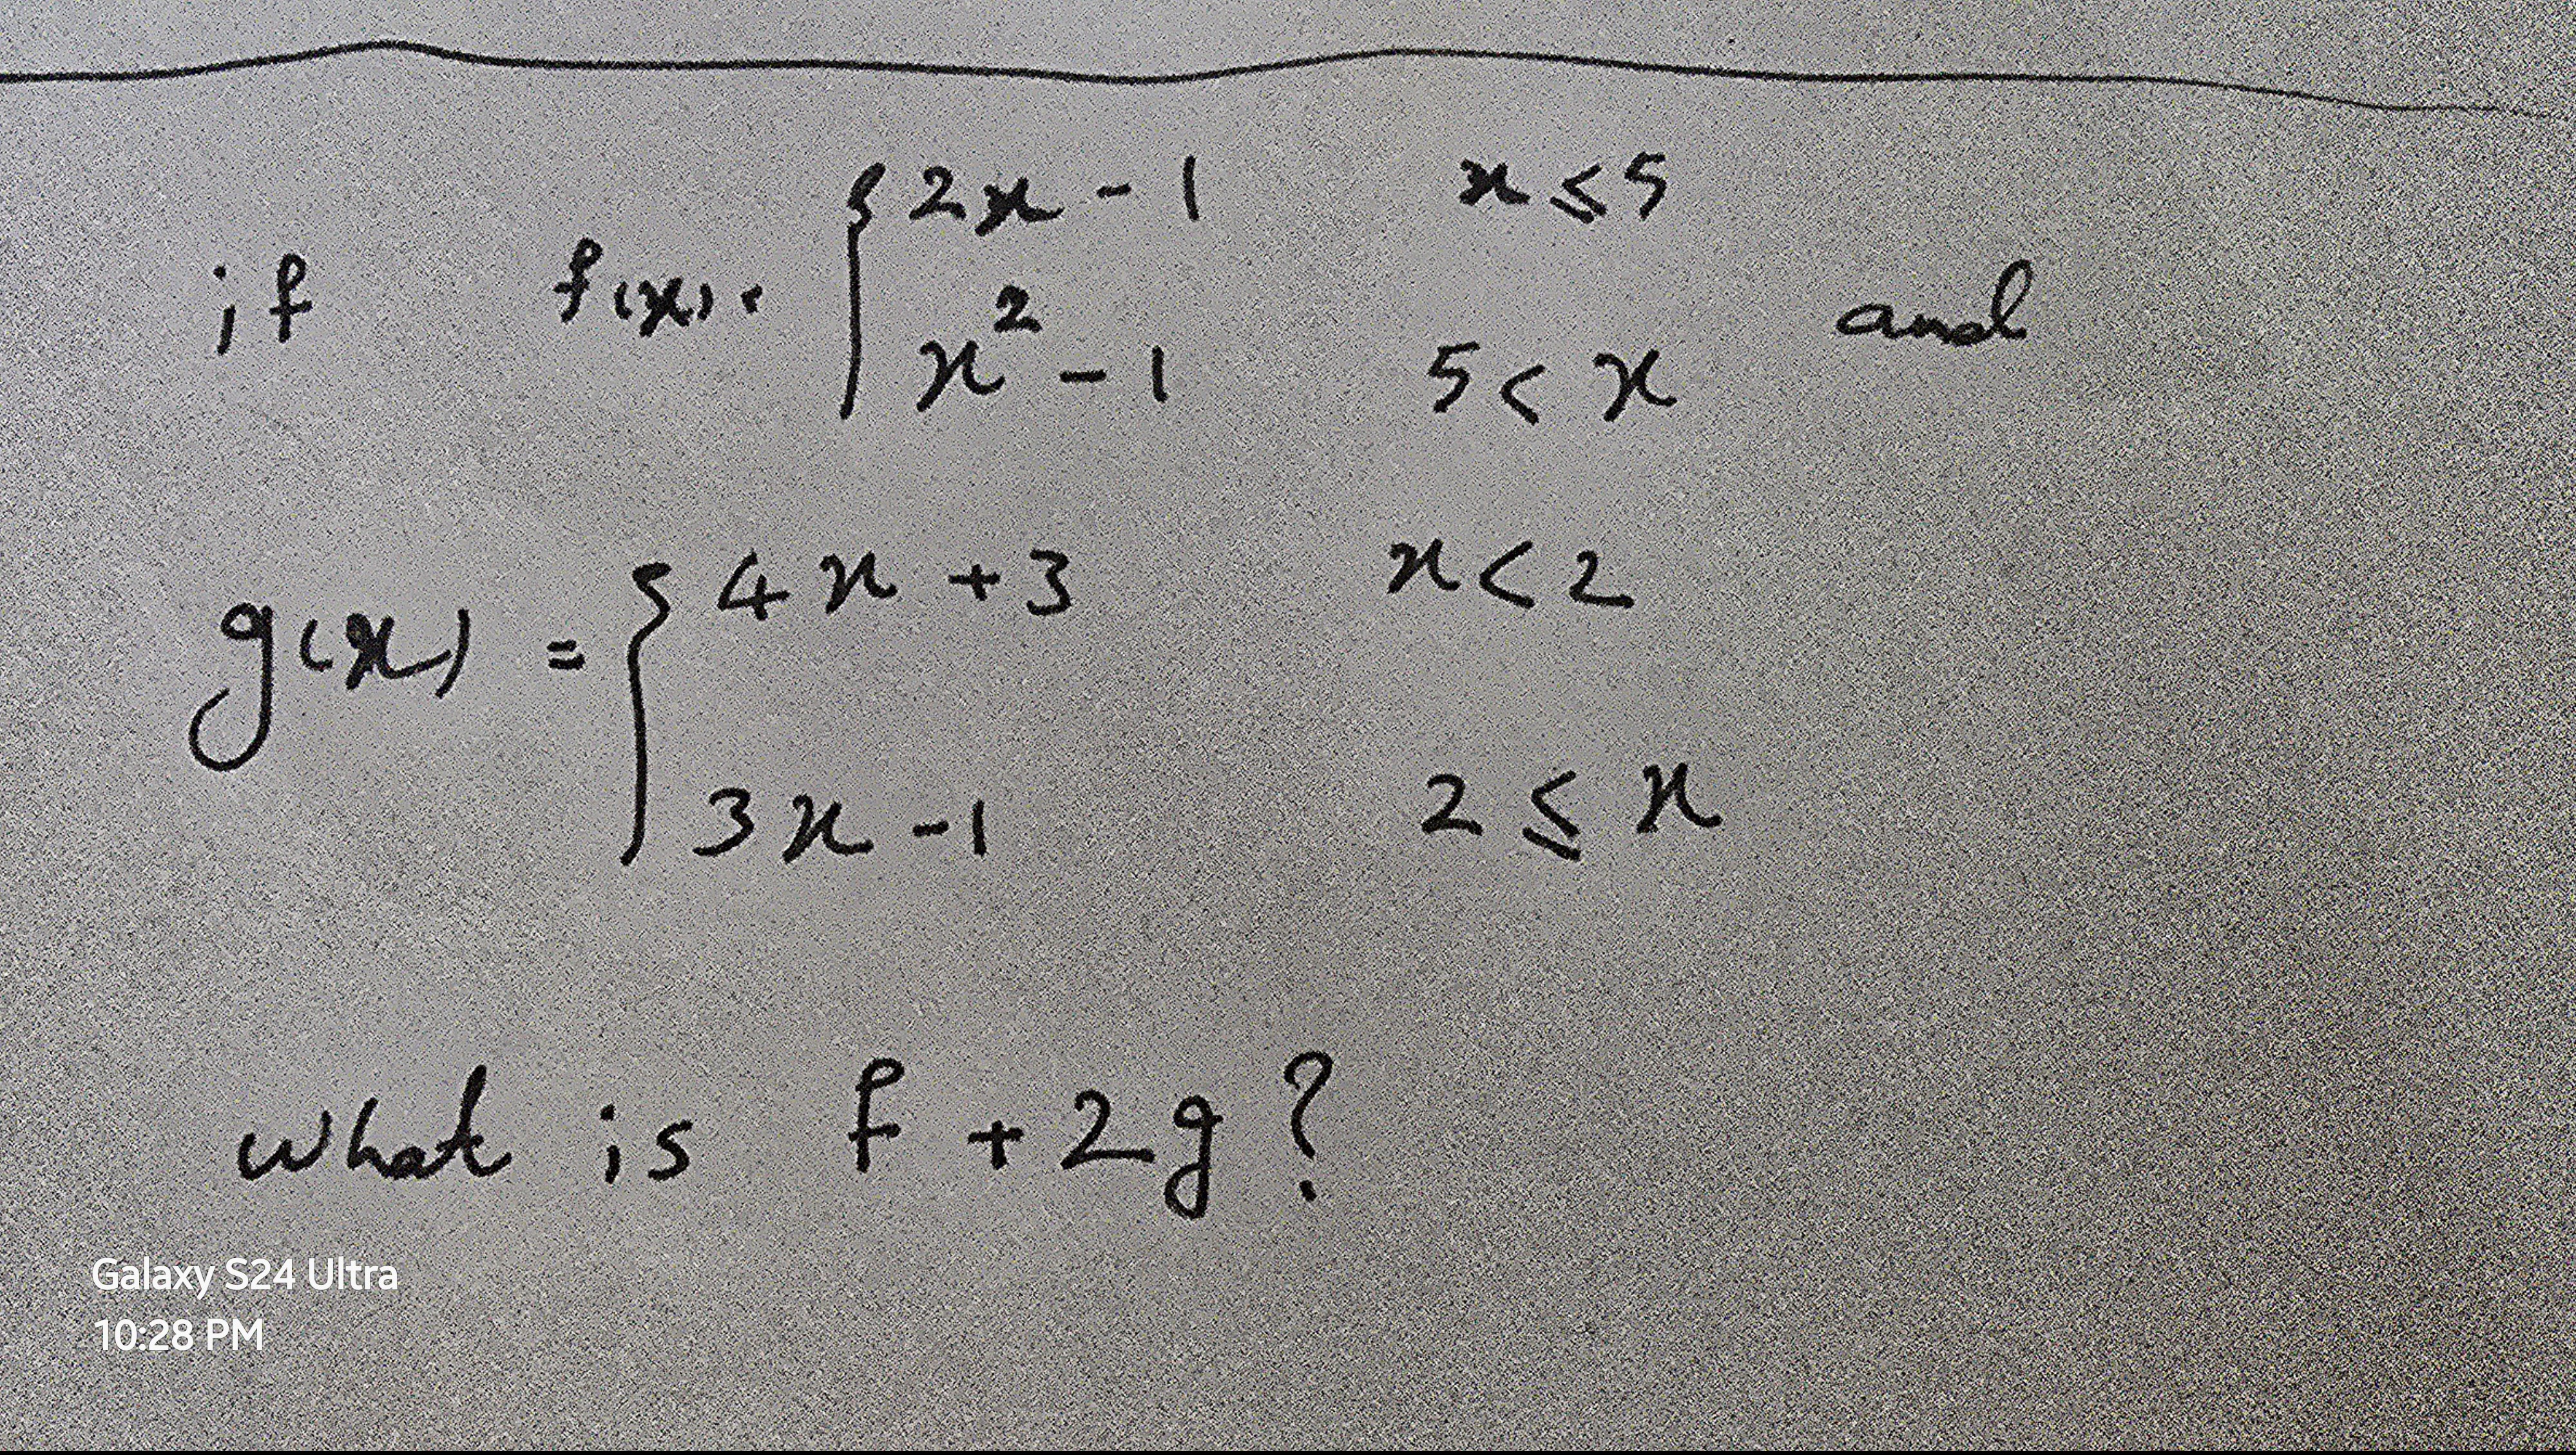 if f(x) = { 2x - 1 x ≤ 5
x² - 1 5 < x and
g(x) = { 4x + 3 x < 2
3x - 1 2 ≤ x
what is f + 2g ?
Galaxy S24 Ultra
10:28 PM